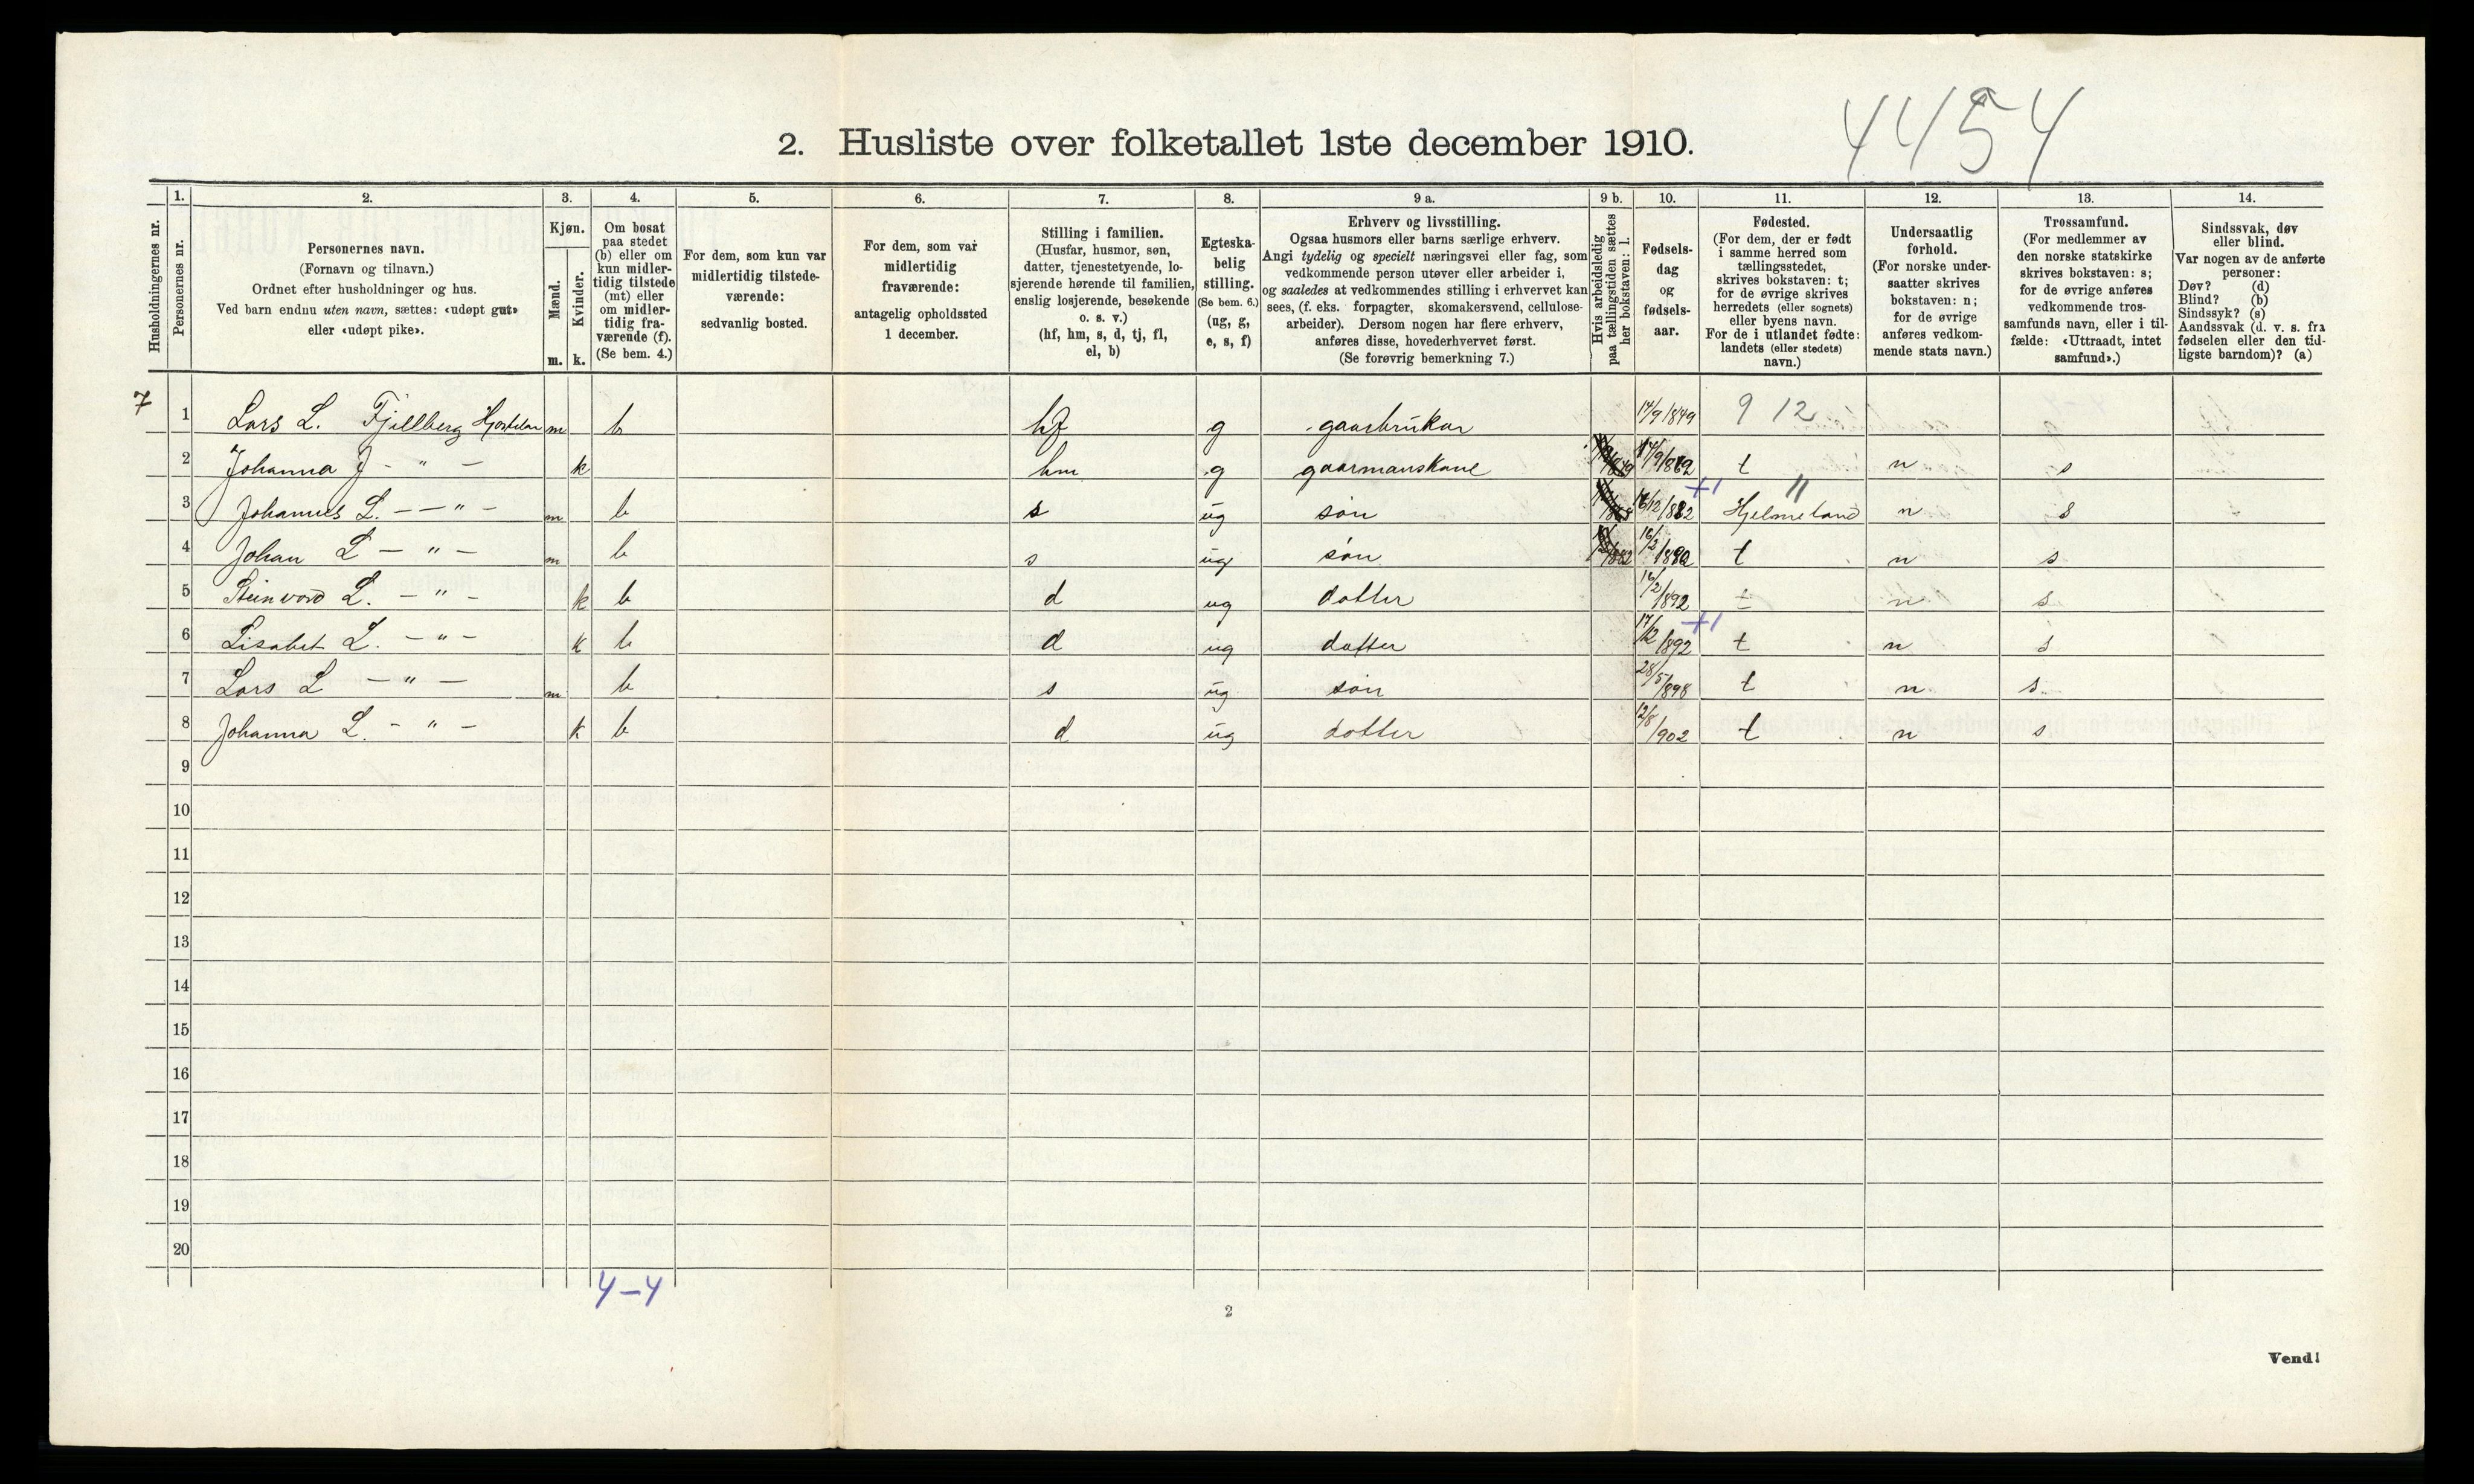 4454
2. Husliste over folketallet 1ste december 1910.
Husholdningernes nr.
1. Personernes nr.
2. Personernes navn.
(Fornavn og tilnavn.)
Ordnet efter husholdninger og hus.
Ved barn endnu uten navn, sættes: «udøpt gut»
eller «udøpt pike».
3. Kjøn.
Mænd. m.
Kvinder. k.
4. Om bosat
paa stedet
(b) eller om
kun midler-
tidig tilstede
(mt) eller
om midler-
tidig fra-
værende (f).
(Se bem. 4.)
5. For dem, som kun var
midlertidig tilstede-
værende:
sedvanlig bosted.
6. For dem, som var
midlertidig
fraværende:
antagelig opholdssted
1 december.
7. Stilling i familien.
(Husfar, husmor, søn,
datter, tjenestetyende, lo-
sjerende hørende til familien,
enslig losjerende, besøkende
o. s. v.)
(hf, hm, s, d, tj, fl,
el, b)
8. Egteska-
belig
stilling.
(Se bem. 6.)
(ug, g,
e, s, f)
9 a. Erhverv og livsstilling.
Ogsaa husmors eller barns særlige erhverv.
Angi tydelig og specielt næringsvei eller fag, som
vedkommende person utøver eller arbeider i,
og saaledes at vedkommendes stilling i erhvervet kan
sees, (f. eks. forpagter, skomakersvend, cellulose-
arbeider). Dersom nogen har flere erhverv,
anføres disse, hovederhvervet først.
(Se forøvrig bemerkning 7.)
9 b. Hvis arbeidsledig
paa tællingstiden sættes
her bokstaven: l.
10. Fødsels-
dag
og
fødsels-
aar.
11. Fødested.
(For dem, der er født
i samme herred som
tællingsstedet,
skrives bokstaven: t;
for de øvrige skrives
herredets (eller sognets)
eller byens navn.
For de i utlandet fødte:
landets (eller stedets)
navn.)
12. Undersaatlig
forhold.
(For norske under-
saatter skrives
bokstaven: n;
for de øvrige
anføres vedkom-
mende stats navn.)
13. Trossamfund.
(For medlemmer av
den norske statskirke
skrives bokstaven: s;
for de øvrige anføres
vedkommende tros-
samfunds navn, eller i til-
fælde: «Uttraadt, intet
samfund».)
14. Sindssvak, døv
eller blind.
Var nogen av de anførte
personer:
Døv? (d)
Blind? (b)
Sindssyk? (s)
Aandssvak (d. v. s. fra
fødselen eller den tid-
ligste barndom)? (a)
7 1 Lars L. Fjellberg m b hf g gaarbrukar 14/9 1849 9 12
2 Johanna J - " - k hm g gaarmanskone t n s
3 Johannes L. - " - m b s ug søn 16/12 1882 Hjelmeland n s
4 Johan L - " - m b s ug søn t n s
5 Steinvord L. - " - k b d ug dotter 16/2 1892 t n s
6 Lisabet L. - " - k b d ug dotter 17/12 1892 t n s
7 Lars L - " - m b s ug søn 28/5 1898 t n s
8 Johanna L. - " - k b d ug dotter 12/8 1902 t n s
9
10
11
12
13
14
15
16
17
18
19
20
4-4
2
Vend!